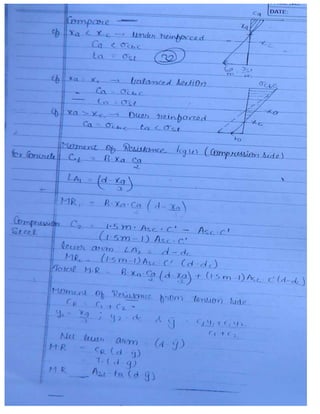 DATE:
Compare
if xa < xc → Under reinforced
Ca < σcbc
ta = σst
32
if xa = xc → balanced section
Ca = σcbc
ta = σst
if xa > xc → Over reinforced
Ca = σcbc ta < σst
Moment of Resistance (Compression side)
for Concrete C1 = B·xa ca/2
LA1 = (d - xa/3)
MR1 = B·xa·Ca/2 (d - xa/3)
Compression Steel C2 = 1.5m·Asc·C' - Asc·C'
(1.5m-1)Asc·C'
lever arm LA2 = d - dc
MR2 = (1.5m-1)Asc C' (d-dc)
Total M·R = B·xa·Ca/2 (d - xa/3) + (1.5m-1)Asc C' (d-dc)
Moment of Resistance from tension side
CR = C1 + C2
y1 = xa/3 ; y2 = dc & ȳ = C1y1 + C2y2 / C1 + C2
Net lever arm = (d-ȳ)
MR = CR (d-ȳ)
= T (d-ȳ)
MR = Ast·ta (d-ȳ)